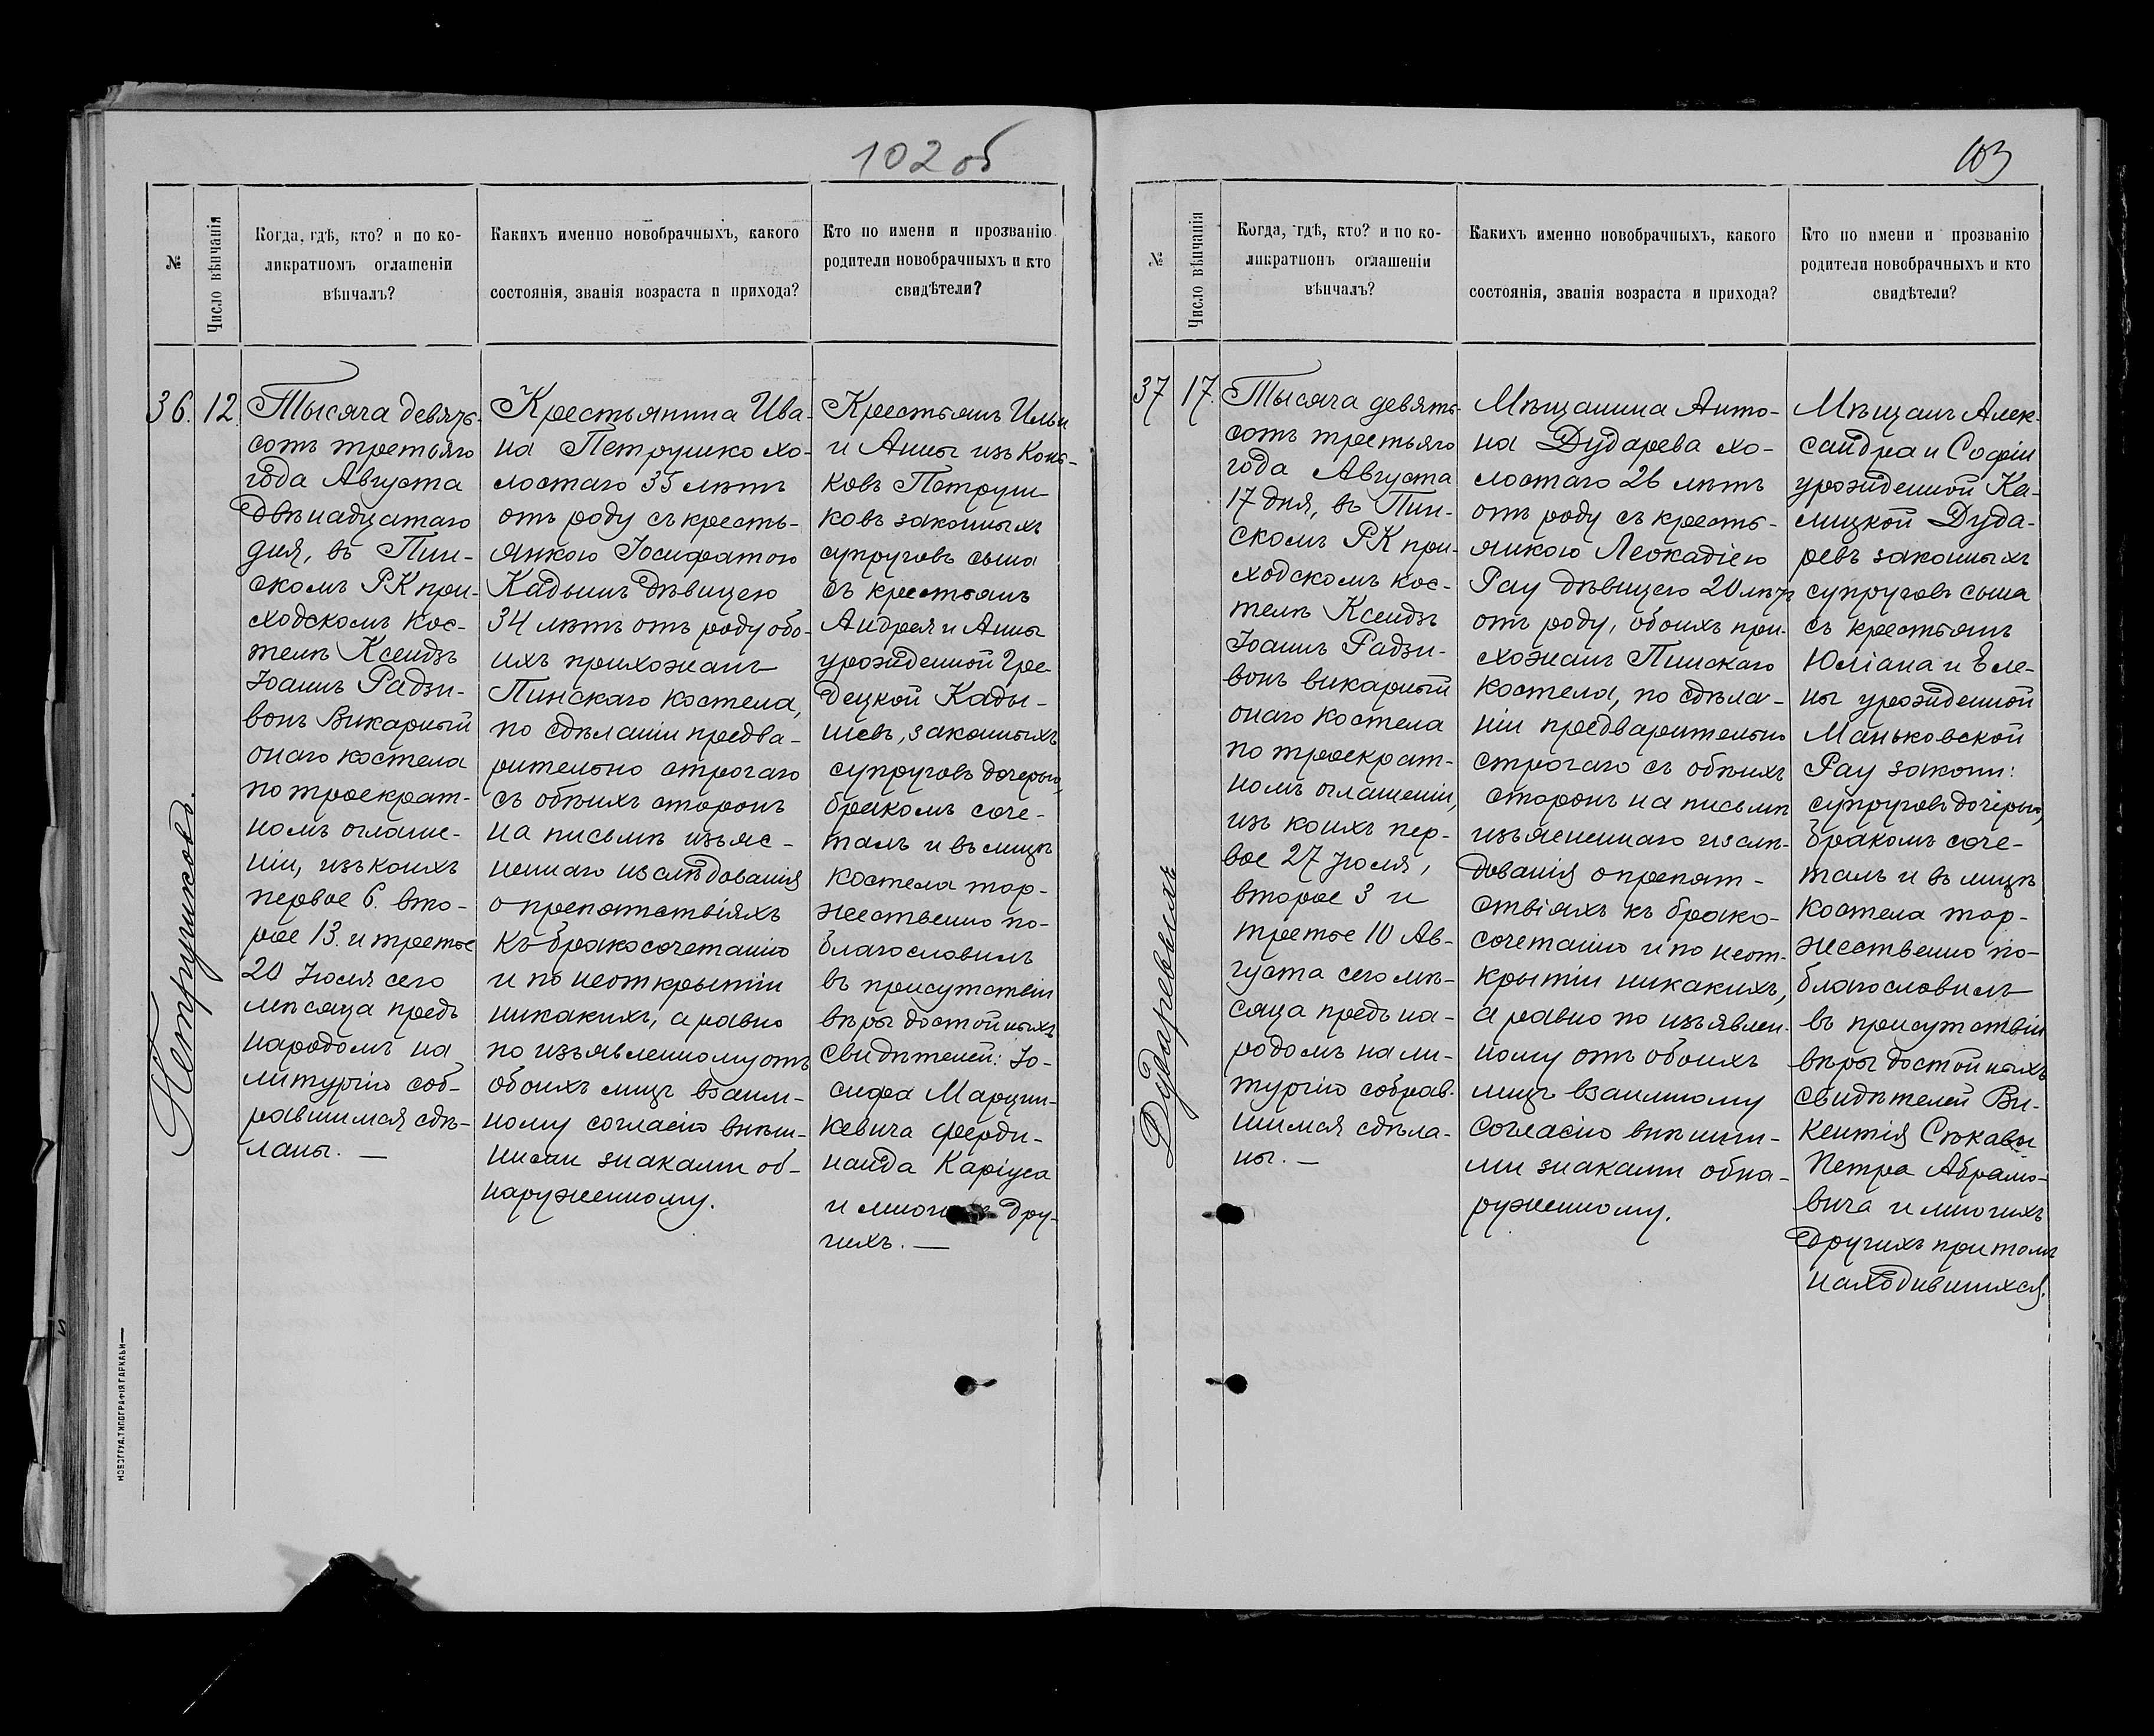 102 об
№
Число вѣнчанія
Когда, гдѣ, кто? и по ко-
ликратномъ оглашеніи
вѣнчалъ?
Какихъ именно новобрачныхъ, какого
состоянія, званія возраста п прихода?
Кто по имени и прозванію
родители новобрачныхъ и кто
свидѣтели?
Петрушковъ.
36.
12.
Тысяча девять-
сотъ третьяго
года Августа
Двѣнадцатаго
дня, въ Пин-
скомъ РК при-
ходскомъ Кос-
телѣ Ксендзъ
Іоаннъ Радзи-
вонъ Викарный
онаго костела
по троекрат-
номъ оглаше-
ніи, изъ коихъ
первое 6. вто-
рое 13. и третье
20 Іюля сего
мѣсяца предъ
народомъ на
литургію соб-
равшимся сдѣ-
ланы. —
Крестьянина Ива-
на Петрушко хо-
лостаго 35 лѣтъ
отъ роду съ кресть-
янкою Іосифатою
Кадышъ дѣвицею
34 лѣтъ отъ роду обо-
ихъ прихожанъ
Пинскаго Костела,
по сдѣланіи предва-
рительно строгаго
съ обѣихъ сторонъ
на письмѣ изъяс-
неннаго изслѣдованія
о препятствіяхъ
къ бракосочетанію
и по неоткрытіи
никакихъ, а равно
по изъявленному отъ
обоихъ лицъ взаим-
ному согласію внѣш-
ними знаками об-
наруженному.
Крестьянъ Ильи
и Анны изъ Конь-
ковъ Петруш-
ковъ законныхъ
супруговъ сына
съ крестьянъ
Андрея и Анны
урожденной Гре-
децкой Кады-
шевъ, законныхъ
супруговъ дочерью,
бракомъ соче-
талъ и въ лицѣ
Костела тор-
жественно по-
благословилъ
въ присутствіи
вѣры достойныхъ
свидѣтелей: Іо-
сифа Марцин-
кевича Ферди-
нанда Каріуса
и многихъ дру-
гихъ. —
НОВОГРУД. ТИПОГРАФІЯ ГАРКАВИ
103
№
Число вѣнчанія
Когда, гдѣ, кто? и по ко-
ликратномъ оглашеніи
вѣнчалъ?
Какихъ именно новобрачныхъ, какого
состоянія, званія возраста и прихода?
Кто по имени и прозванію
родители новобрачныхъ и кто
свидѣтели?
Дударевыхъ
37
17.
Тысяча девять-
сотъ третьяго
года Августа
17 дня, въ Пин-
скомъ РК при-
ходскомъ кос-
телѣ Ксендзъ
Іоаннъ Радзи-
вонъ викарный
онаго костела
по троекрат-
номъ оглашеніи,
изъ коихъ пер-
вое 27 Іюля,
второе 3 и
третье 10 Ав-
густа сего мѣ-
сяца предъ на-
родомъ на ли-
тургію собрав-
шимся сдѣла-
ны. —
Мѣщанина Анто-
на Дударева хо-
лостаго 26 лѣтъ
отъ роду съ кресть-
янкою Леокадіею
Рау дѣвицею 20 лѣтъ
отъ роду, обоихъ при-
хожанъ Пинскаго
Костела, по сдѣла-
ніи предварительно
строгаго съ обѣихъ
сторонъ на письмѣ
изъясненнаго изслѣ-
дованія о препят-
ствіяхъ къ брако-
сочетанію и по неот-
крытіи никакихъ,
а равно по изъявлен-
ному отъ обоихъ
лицъ взаимному
согласію внѣшни-
ми знаками обна-
руженному.
Мѣщанъ Алек-
сандра и Софіи
урожденной Ка-
лицкой Дуда-
ревъ законныхъ
супруговъ сына
съ крестьянъ
Юліана и Еле-
ны урожденной
Маньковской
Рау законн:
супруговъ дочерью,
бракомъ соче-
талъ и въ лицѣ
Костела тор-
жественно по-
благословилъ
въ присутствіи
вѣры достойныхъ
свидѣтелей Ви-
кентія Сѣкавы
Петра Абрамо-
вича и многихъ
другихъ при томъ
находившихся.